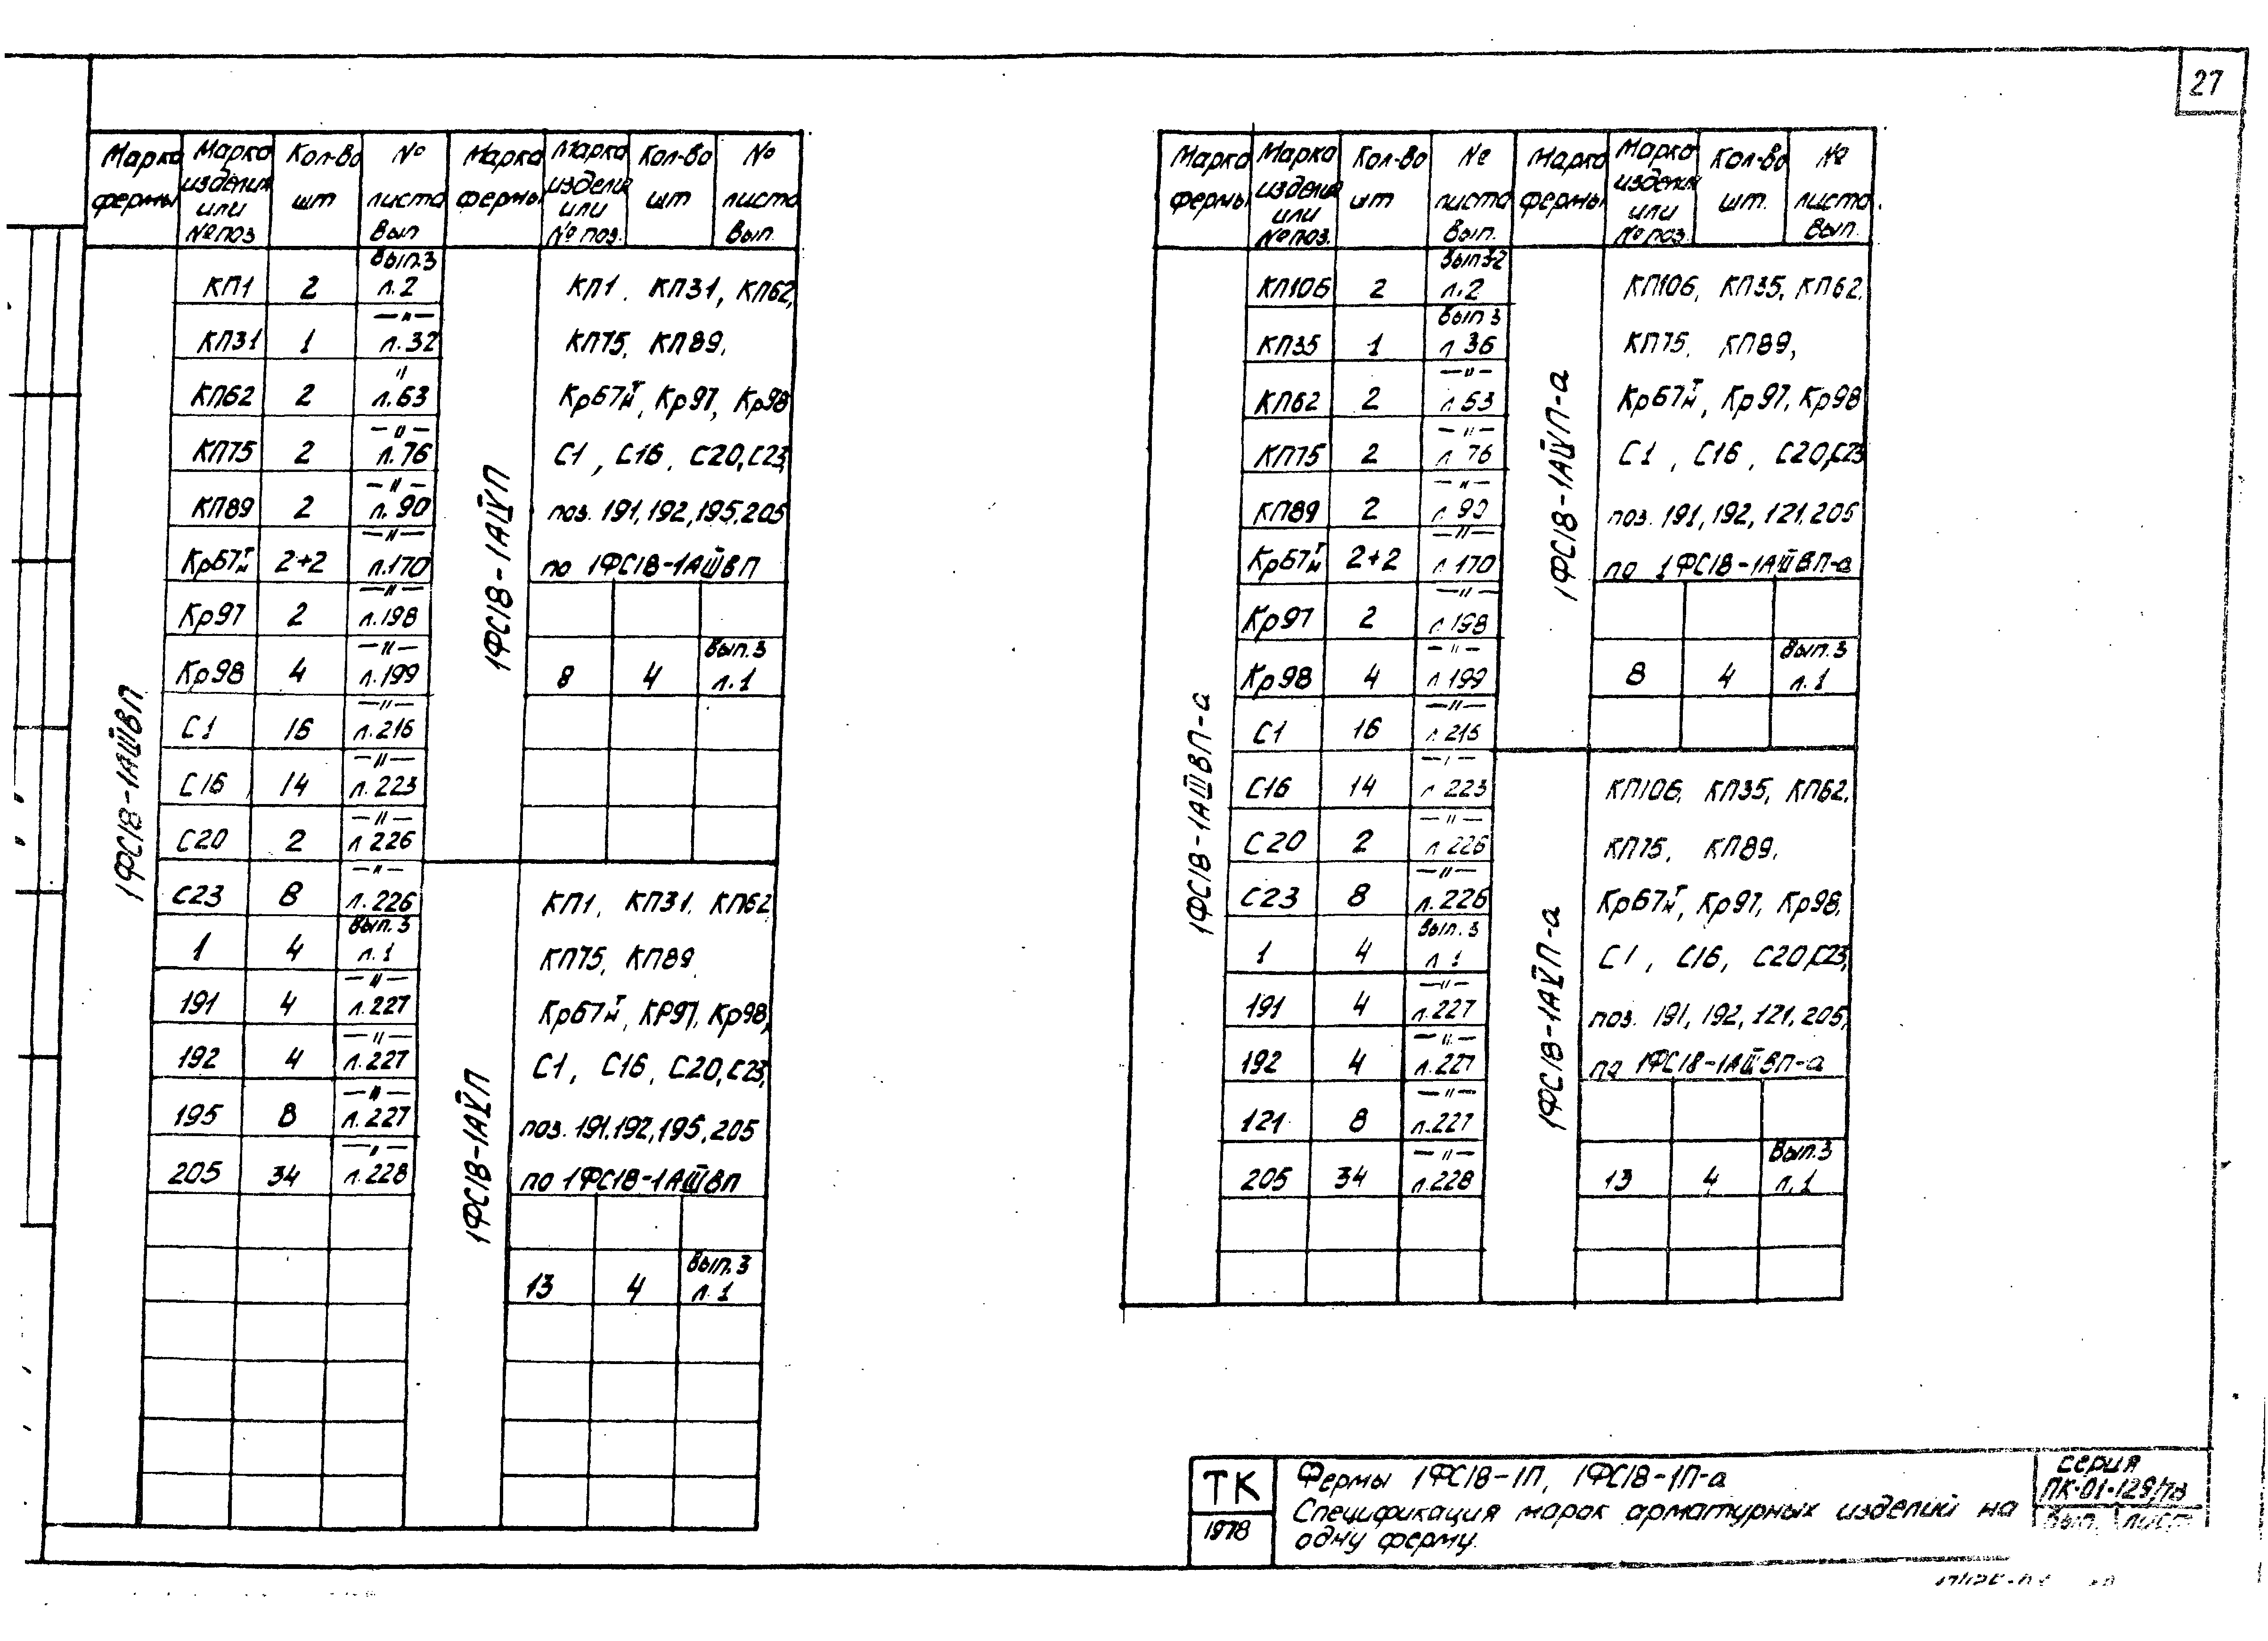 27
Марка фермы | Марка изделия или № поз | Кол-во шт | № листа Вып | Марка фермы | Марка изделия или № поз. | Кол-во шт | № листа Вып.
1ФС18-1АШВП
КП1 2 Вып.3 л.2
КП31 1 —"— л.32
КП62 2 " л.63
КП75 2 —"— л.76
КП89 2 —"— л.90
Кр67т/н 2+2 —"— л.170
Кр97 2 —"— л.198
Кр98 4 —"— л.199
С1 16 —"— л.216
С16 14 —"— л.223
С20 2 —"— л 226
С23 8 —"— л.226
1 4 Вып.3 л.1
191 4 —"— л.227
192 4 —"— л.227
195 8 —"— л.227
205 34 —"— л.228
1ФС18-1АIVП
КП1, КП31, КП62,
КП75, КП89,
Кр67т/н, Кр97, Кр98
С1, С16, С20, С23,
поз. 191, 192, 195, 205
по 1ФС18-1АШВП
8 4 Вып.3 л.1
1ФС18-1АVП
КП1, КП31, КП62
КП75, КП89
Кр67т/н, КР97, Кр98,
С1, С16, С20, С23,
поз. 191, 192, 195, 205
по 1ФС18-1АШВП
13 4 Вып.3 л.1
Марка фермы | Марка изделия или № поз. | Кол-во шт | № листа Вып. | Марка фермы | Марка изделия или № поз. | Кол-во шт. | № листа Вып.
1ФС18-1АШВП-а
КП106 2 Вып3-2 л.2
КП35 1 Вып 3 л 36
КП62 2 —"— л 63
КП75 2 —"— л 76
КП89 2 —"— л 90
Кр67т/н 2+2 —"— л 170
Кр97 2 —"— л 198
Кр98 4 —"— л 199
С1 16 —"— л 216
С16 14 —"— л 223
С20 2 —"— л 226
С23 8 —"— л.226
1 4 Вып.3 л 1
191 4 —"— л.227
192 4 —"— л.227
121 8 —"— л.227
205 34 —"— л.228
1ФС18-1АIVП-а
КП106, КП35, КП62,
КП75, КП89,
Кр67т/н, Кр97, Кр98
С1, С16, С20, С23
поз. 191, 192, 121, 205
по 1ФС18-1АШВП-а
8 4 Вып.3 л.1
1ФС18-1АVП-а
КП106, КП35, КП62,
КП75, КП89,
Кр67т/н, Кр97, Кр98,
С1, С16, С20, С23,
поз. 191, 192, 121, 205,
по 1ФС18-1АШВП-а
13 4 Вып.3 л.1
ТК
1978
Фермы 1ФС18-1П, 1ФС18-1П-а
Спецификация марок арматурных изделий на
одну ферму.
серия
ПК-01-129/78
Вып. лист